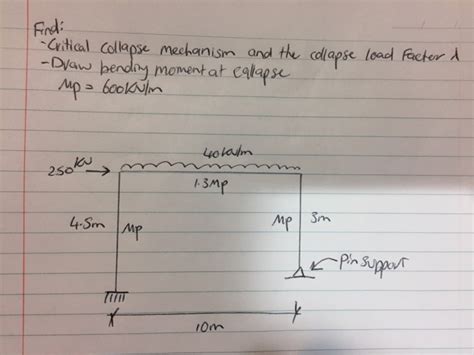 Find:
-Critical collapse mechanism and the collapse load factor λ
-Draw bending moment at collapse
Mp = 600kN/m
40kN/m
250kN
1.3Mp
4.5m
Mp
Mp
3m
Pin support
10m